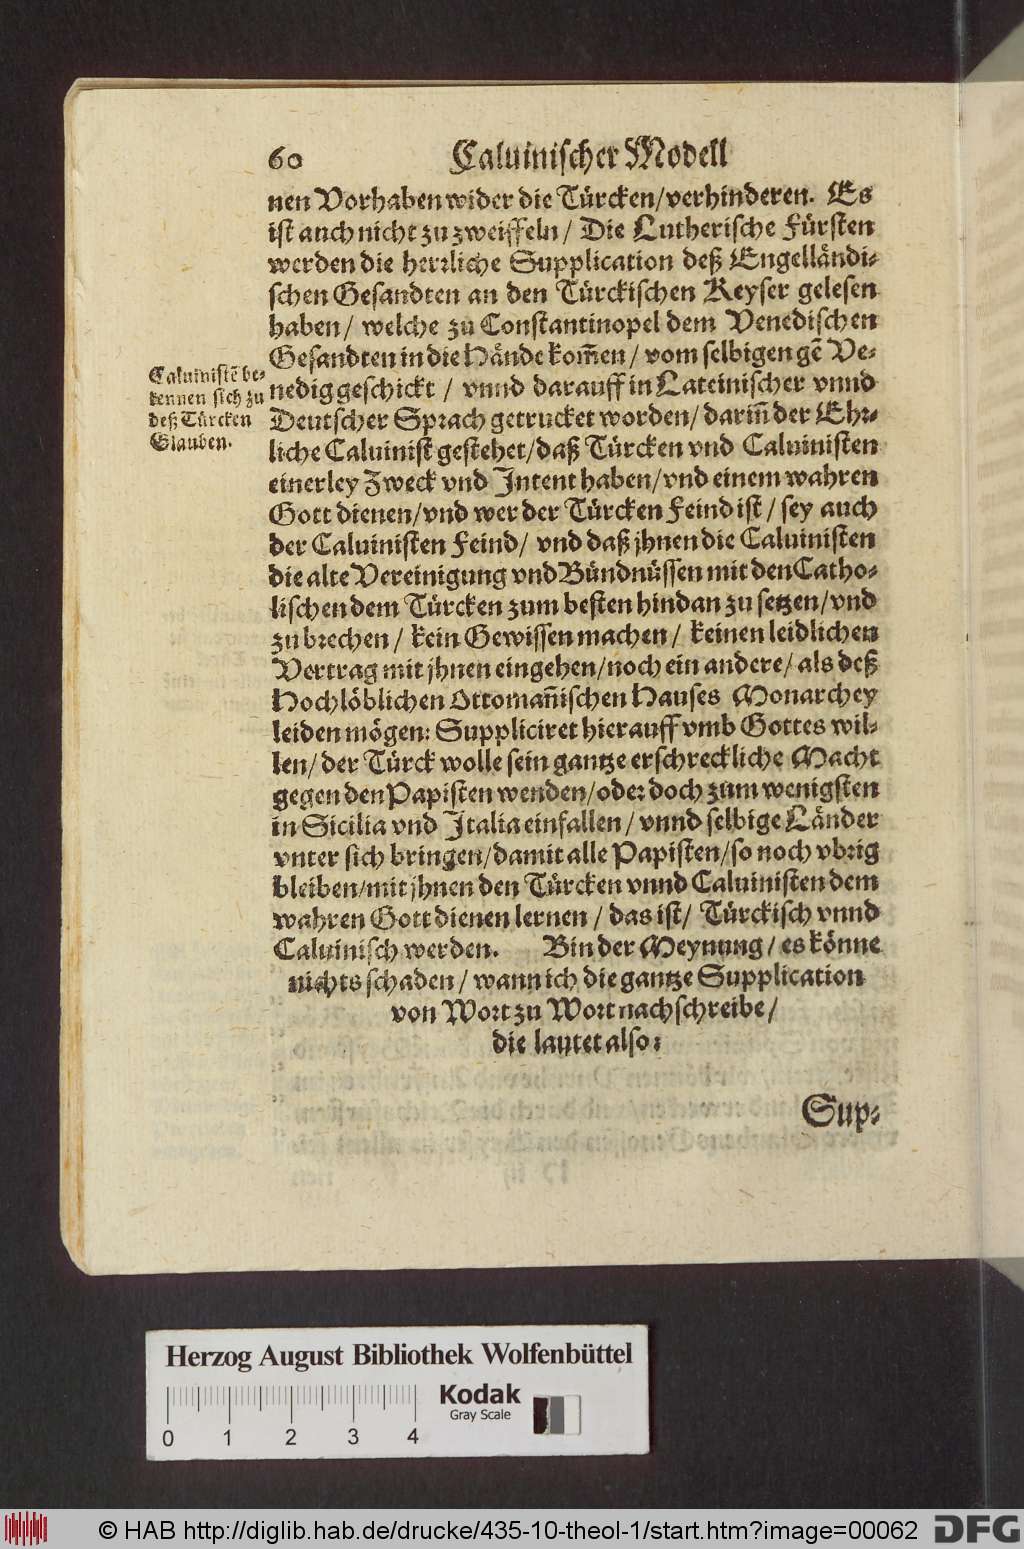 60 Caluinischer Modell
nen Vorhaben wider die Türcken/verhinderen. Es
ist auch nicht zu zweiffeln/ Die Lutherische Fürsten
werden die herꝛliche Supplication deß Engelländi-
schen Gesandten an den Türckischen Keyser gelesen
haben/ welche zu Constantinopel dem Venedischen
Gesandten in die Hände kom̃en/ vom selbigen gẽ Ve-
nedig geschickt / vnnd darauff in Lateinischer vnnd
Deutscher Sprach getrucket worden/ darin̄ der Ehr-
liche Caluinist gestehet/daß Türcken vnd Caluinisten
einerley Zweck vnd Intent haben/vnd einem wahren
Gott dienen/vnd wer der Türcken Feind ist / sey auch
der Caluinisten Feind/ vnd daß jhnen die Caluinisten
die alte Vereinigung vnd Bündnüssen mit den Catho-
lischen dem Türcken zum besten hindan zu setzen/vnd
zu brechen / kein Gewissen machen / keinen leidlichen
Vertrag mit jhnen eingehen/noch ein andere/ als deß
Hochlöblichen Ottoman̄ischen Hauses Monarchey
leiden mögen: Suppliciret hierauff vmb Gottes wil-
len/ der Türck wolle sein gantze erschreckliche Macht
gegen den Papisten wenden/oder doch zum wenigsten
in Sicilia vnd Italia einfallen / vnnd selbige Länder
vnter sich bringen/damit alle Papisten/so noch vbrig
bleiben/mit jhnen den Türcken vnnd Caluinisten dem
wahren Gott dienen lernen / das ist/ Türckisch vnnd
Caluinisch werden. Bin der Meynung / es könne
nichts schaden / wann ich die gantze Supplication
von Wort zu Wort nachschreibe /
die lautet also:
Sup-
Caluinistẽ be-
kennen sich zu
deß Türcken
Glauben.
Herzog August Bibliothek Wolfenbüttel
Kodak
Gray Scale
0 1 2 3 4
© HAB http://diglib.hab.de/drucke/435-10-theol-1/start.htm?image=00062
DFG